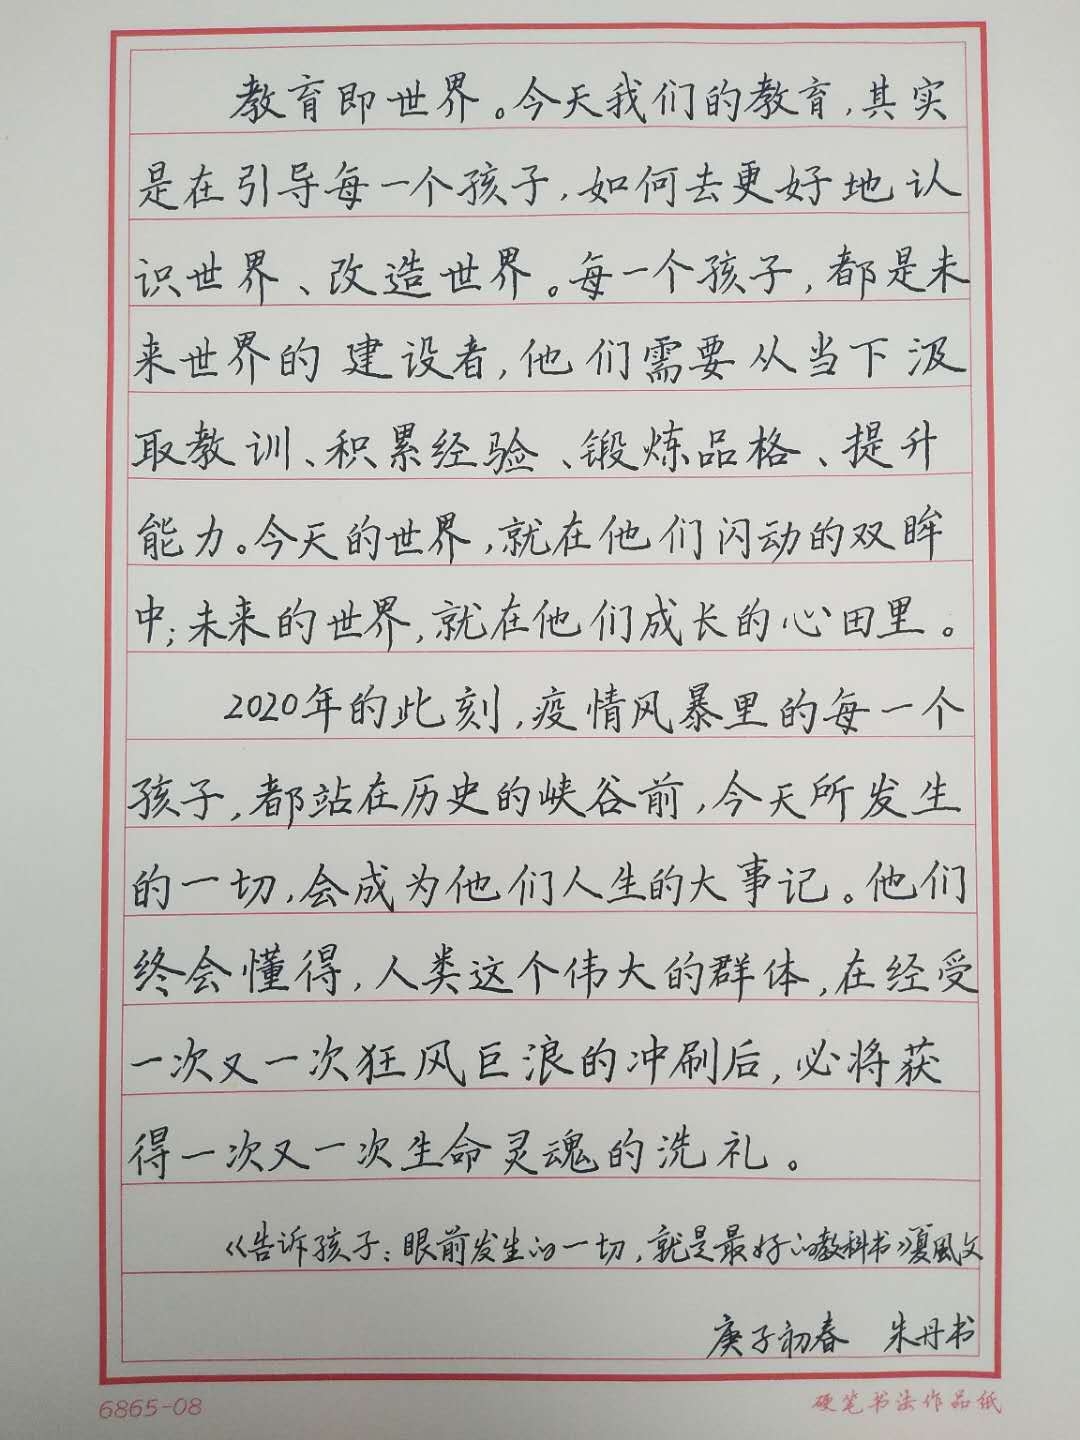 教育即世界。今天我们的教育,其实
是在引导每一个孩子,如何去更好地认
识世界、改造世界。每一个孩子,都是未
来世界的建设者,他们需要从当下汲
取教训、积累经验、锻炼品格、提升
能力。今天的世界,就在他们闪动的双眸
中;未来的世界,就在他们成长的心田里。
2020年的此刻,疫情风暴里的每一个
孩子,都站在历史的峡谷前,今天所发生
的一切,会成为他们人生的大事记。他们
终会懂得,人类这个伟大的群体,在经受
一次又一次狂风巨浪的冲刷后,必将获
得一次又一次生命灵魂的洗礼。
《告诉孩子:眼前发生的一切,就是最好的教科书》夏風文
庚子初春 朱丹书
6865-08 硬笔书法作品纸